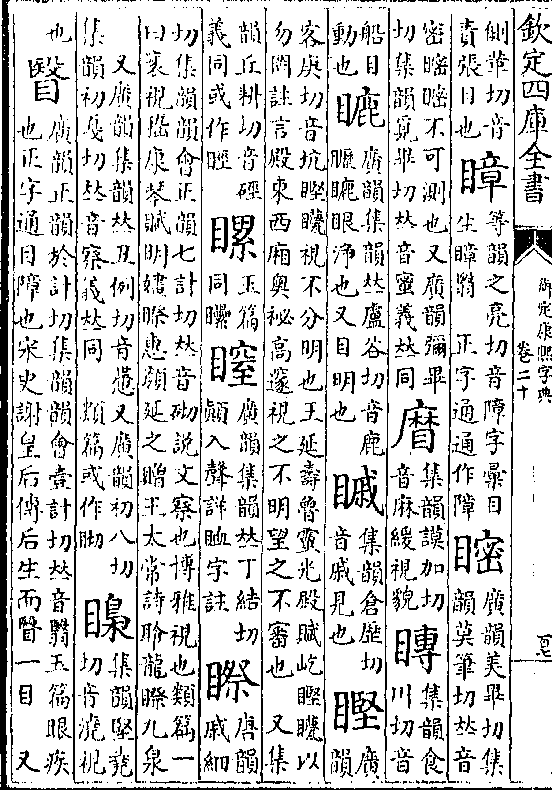 欽定四庫全書
御定康熙字典
卷二十
側革切音
責張目也
瞕
等韻之亮切音障字彙目
生瞕翳　正字通通作障
𥊍
廣韻美畢切集
韻莫筆切𠀤音
密𥊍𥊍不可測也又廣韻彌畢
切集韻覓畢切𠀤音蜜義𠀤同
𥊚
集韻謨加切
音麻緩視貌
𥊫
集韻食
川切音
船目
動也
䁖
廣韻集韻𠀤盧谷切音鹿
眼淨也又目明也
𥉷
集韻倉歷切
音戚見也
𥉸
廣
韻
客庚切音坑 視不分明也王延壽魯靈光殿賦屹 以
勿罔註言殿東西廂奧秘高邃視之不明望之不審也　又集
韻丘耕切音硻
義同或作䁝
瞘
玉篇
同
廣韻集韻𠀤丁結切
顛入聲詳䀼字註
瞭
唐韻
戚細
切集韻韻會正韻七計切𠀤音砌說文察也博雅視也類篇一
曰衺視嵇康琴賦明嫿瞭惠顏延之贈王太常詩聆龍瞭九泉
又廣韻集韻𠀤丑例切音𢠾又廣韻初八切
集韻初戛切𠀤音察義𠀤同　類篇或作䀸
集韻堅堯
切音澆視
也
瞖
廣韻正韻於計切集韻韻會壹計切𠀤音翳玉篇眼疾
也正字通目障也宋史謝皇后傳后生而瞖一目　又